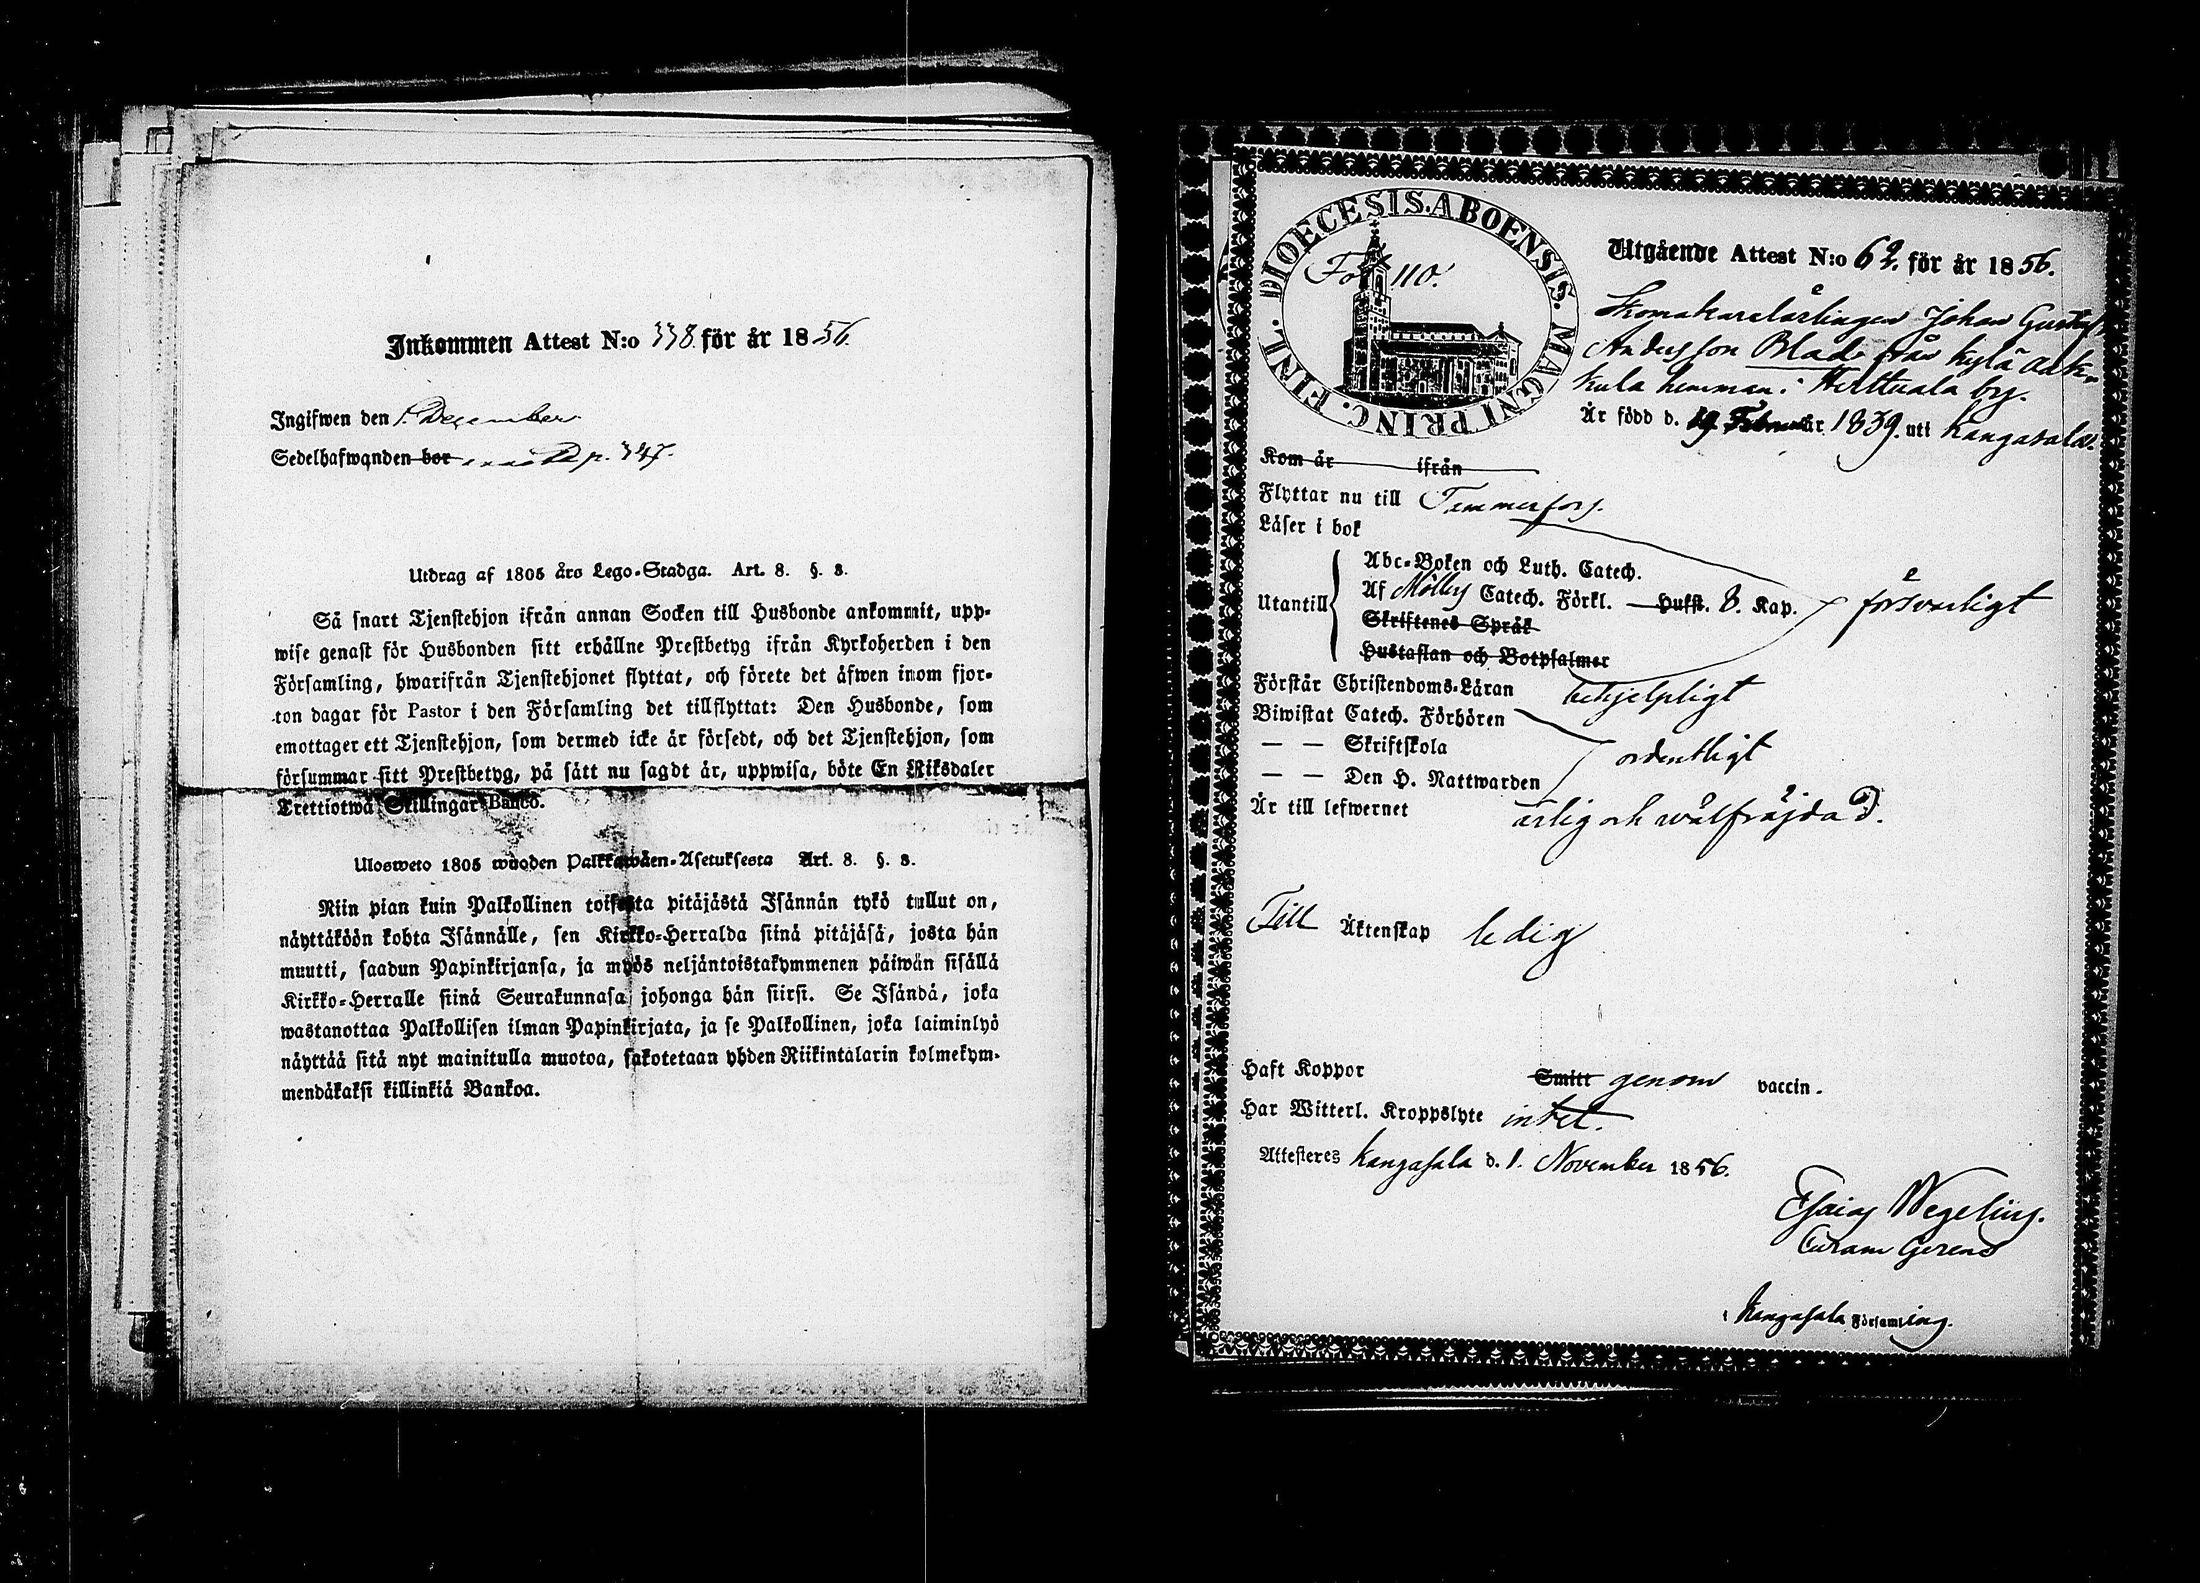 Inkommen Attest N:o 338 för år 1856.
Ingifwen den 1. December
Sedelhafwanden bor p. 347.
Utdrag af 1805 års Lego-Stadga. Art. 8. §. 3.
Så snart Tjenstehjon ifrån annan Socken till Husbonde ankommit, upp-
wise genast för Husbonden sitt erhållne Prestbetyg ifrån Kyrkoherden i den
Församling, hwarifrån Tjenstehjonet flyttat, och förete det äfwen inom fjor-
ton dagar för Pastor i den Församling det tillflyttat: Den Husbonde, som
emottager ett Tjenstehjon, som dermed icke är försedt, och det Tjenstehjon, som
försummar sitt Prestbetyg, på sätt nu sagdt är, uppwisa, böte En Riksdaler
Trettiotwå Skillingar Banco.
Ulosweto 1805 wuoden Palkkawäen-Asetuksesta Art. 8. §. 3.
Niin pian kuin Palkollinen toisesta pitäjästä Isännän tykö tullut on,
näyttäköön kohta Isännälle, sen Kirkko-Herralda siinä pitäjäsä, josta hän
muutti, saadun Papinkirjansa, ja myös neljäntoistakymmenen päiwän sisällä
Kirkko-Herralle siinä Seurakunnasa johonga hän siirsi. Se Isändä, joka
wastanottaa Palkollisen ilman Papinkirjata, ja se Palkollinen, joka laiminlyö
näyttää sitä nyt mainitulla muotoa, sakotetaan yhden Riikintalarin kolmekym-
mendäkaksi killinkiä Bankoa.
DIOECESIS. ABOENSIS. MAGNI PRINC. FINL.
Fol 110.
Utgående Attest N:o 62. för år 1856.
Skomakarelärlingen Johan Gustaf
Andersson Blad från Kylä Ark-
kula hemman i Herttuala by.
Är född d. 19 Februar 1839. uti Kangasala.
Kom år ifrån
Flyttar nu till Tammerfors.
Läser i bok
Utantill
Abc-Boken och Luth. Catech.
Af Möllers Catech. Förkl. Hufst. 8. Kap.
Skriftenes Språk
Hustaflan och Botpsalmer
försvarligt
Förstår Christendoms-Läran behjelpligt
Biwistat Catech. Förhören
— — Skriftskola
— — Den H. Nattwarden
ordentligt
Är till lefwernet ärlig och wälfräjdad.
Till Äktenskap ledig
Haft Koppor Smitt genom vaccin.
Har Witterl. Kroppslyte intet.
Attesteres Kangasala d. 1. November 1856.
Esaias Wegelius.
Curam Gerens
i Kangasala Församling.